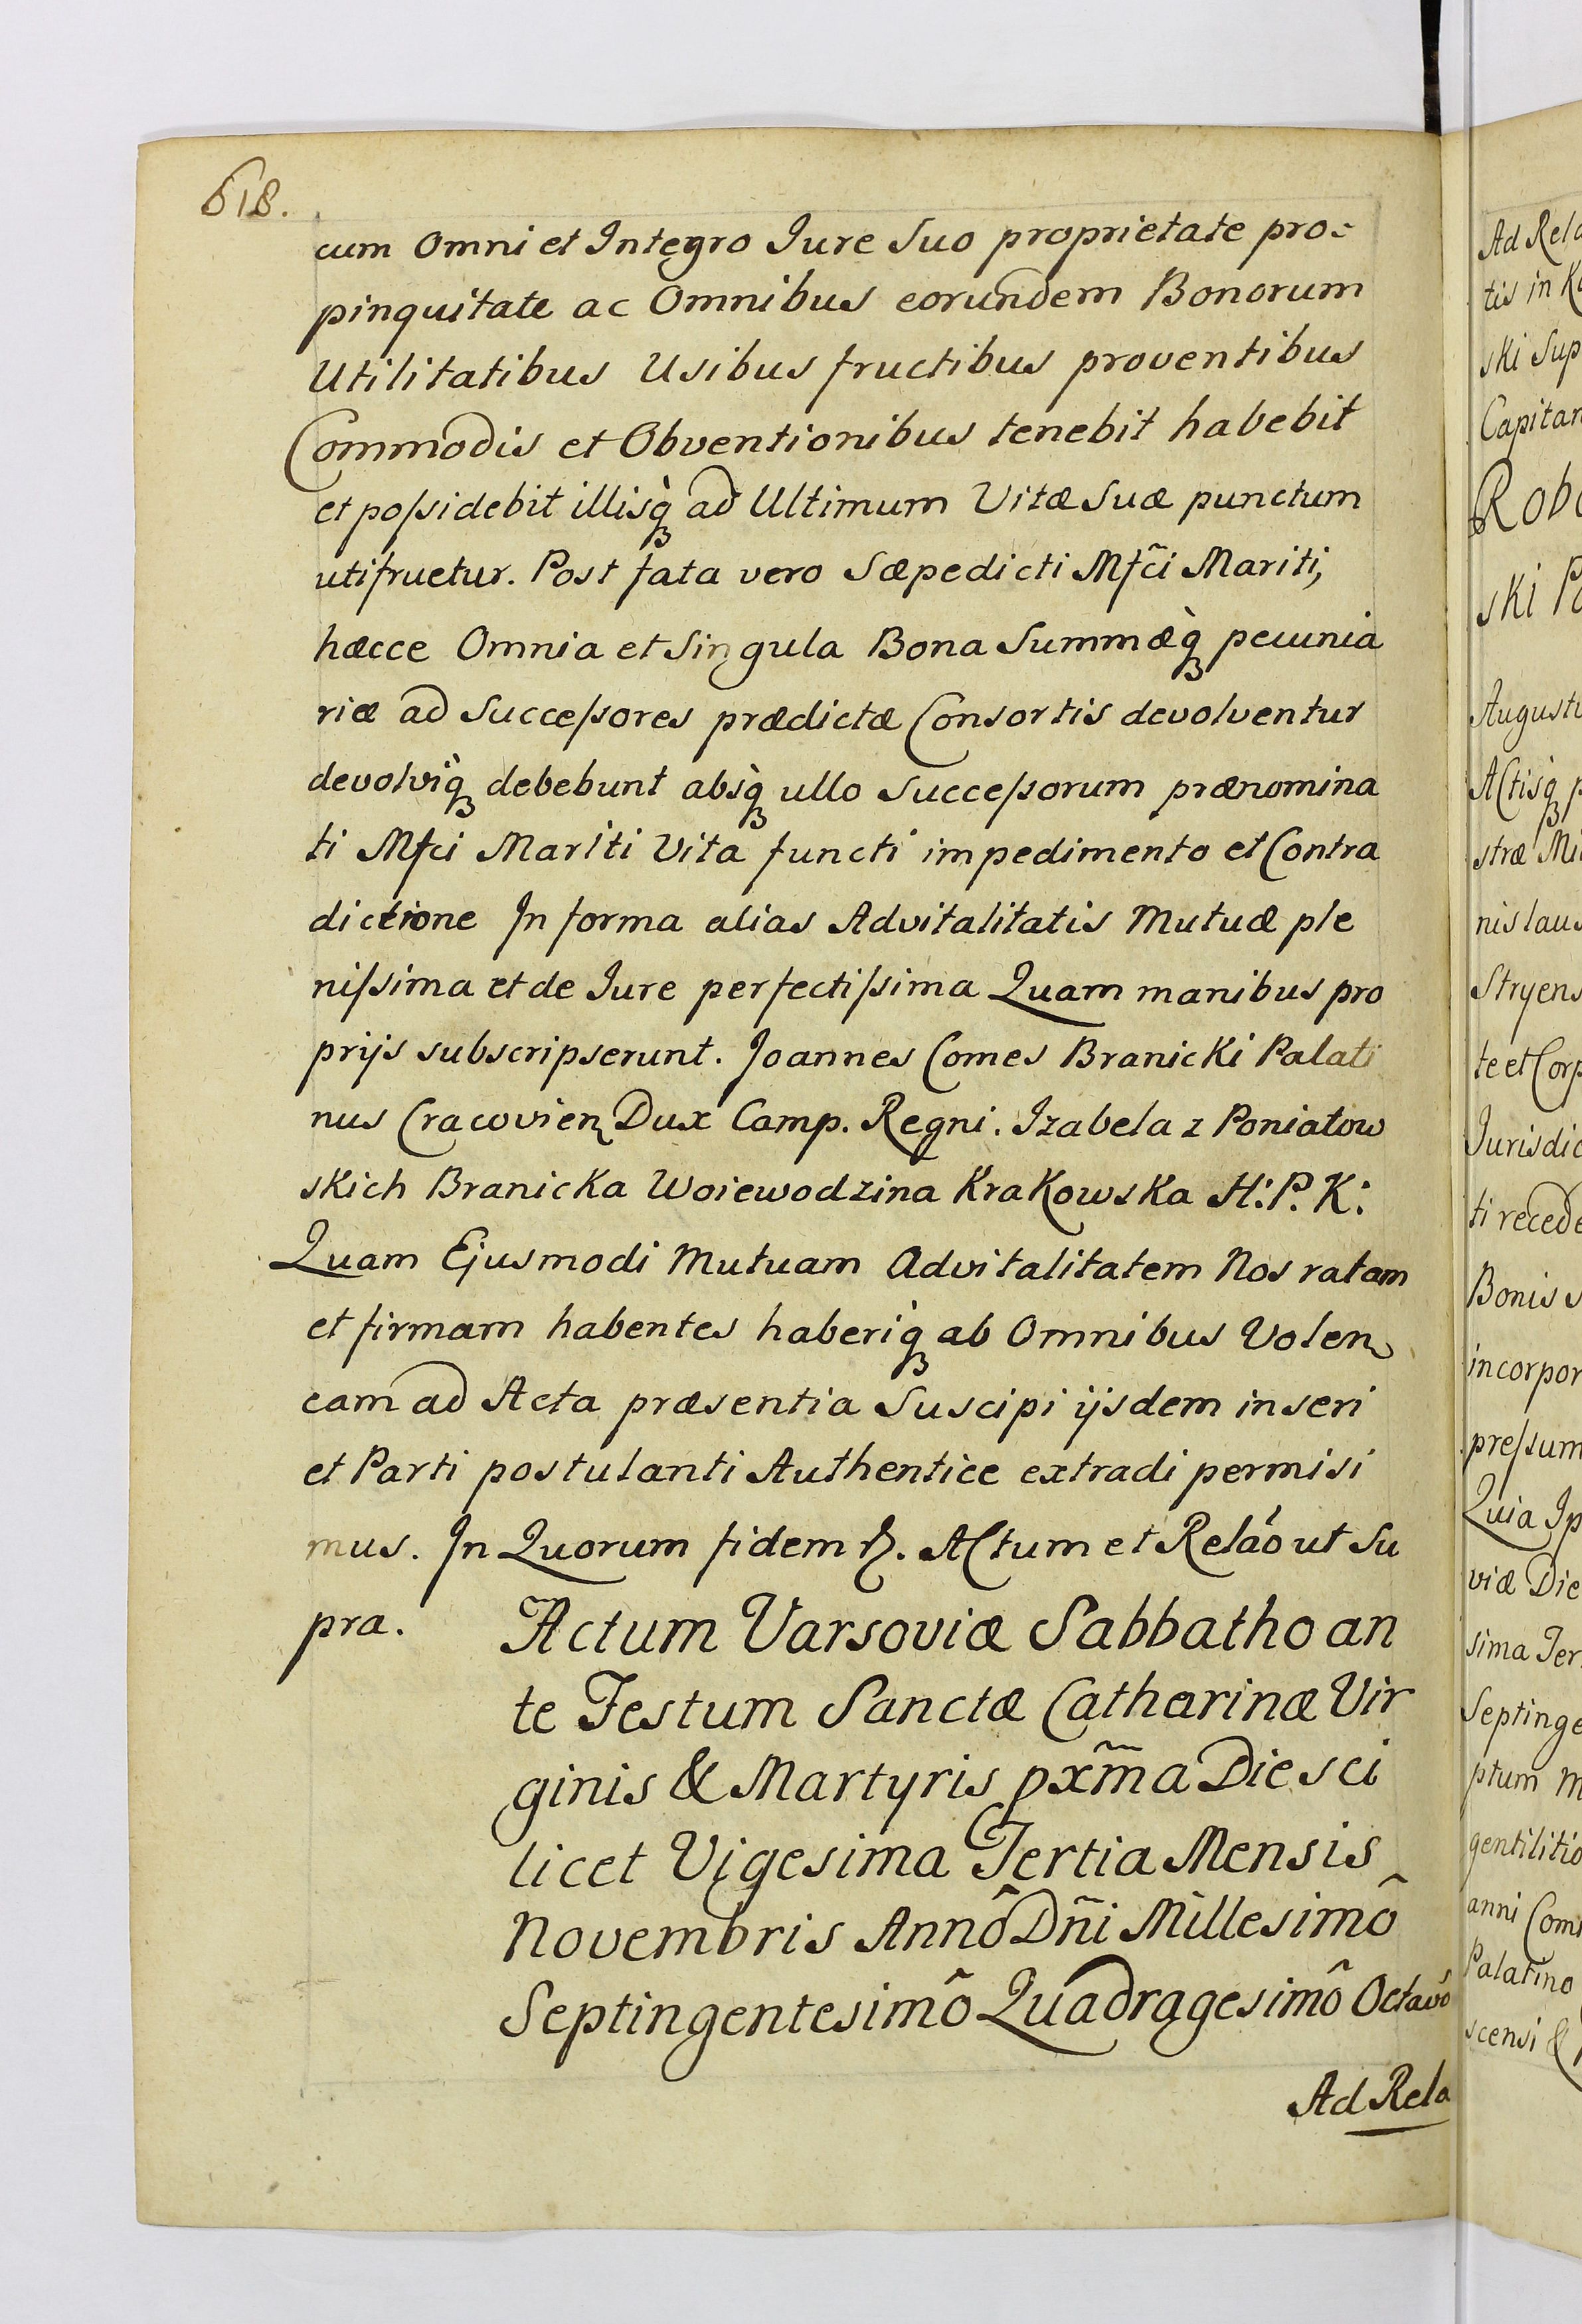 618.
cum Omni et Integro Jure Suo proprietate pro=
pinquitate ac Omnibus eorundem Bonorum
Utilitatibus Usibus fructibus proventibus
Commodis et Obventionibus tenebit habebit
et poſsidebit illisq̀ꝫ ad Ultimum Vitæ Suæ punctum
utifruetur. Post fata vero Sæpedicti Mfc̃i Mariti,
hæcce Omnia et Singula Bona Summæq̀ꝫ pecunia
riæ ad Succeſsores prædictæ Consortis devolventur
devolviq̀ꝫ debebunt absq̀ꝫ ullo Succeſsorum prænomina
ti Mfci Mariti Vita functi impedimento et Contra
dictione In forma alias Advitalitatis Mutuæ ple
niſsima et de Jure perfectiſsima Quam manibus pro
prijs subscripserunt. Joannes Comes Branicki Palati
nus Cracovien Dux Camp. Regni. Izabela z Poniatow
skich Branicka Woiewodzina Krakowska H: P. K:
Quam Ejusmodi Mutuam Advitalitatem Nos ratam
et firmam habentes haberiq̀ꝫ ab Omnibus Volen
eam ad Acta præsentia Suscipi ijsdem inseri
et Parti postulanti Authentice extradi permisi
mus. In Quorum fidem Actum et Relaõ ut Su
pra.
Actum Varsoviæ Sabbatho an
te Festum Sanctæ Catharinæ Vir
ginis & Martyris px̃m̃a Die sci
licet Vigesima Tertia Mensis
Novembris Annô Dñi Millesimô
Septingentesimô Quadragesimô Octavô
Ad Rela
Ad Rela
tis in
ski Sup
Capitan
ski
Augusti
Actisq̀ꝫ
stræ
nislaus
Stryens
te et Corp
Jurisdic
ti recede
Bonis
incorpor
preſsum
Quia Ip
viæ Die
sima Ter
Septinge
ptum
gentilitio
anni Com
Palatino
scensi &